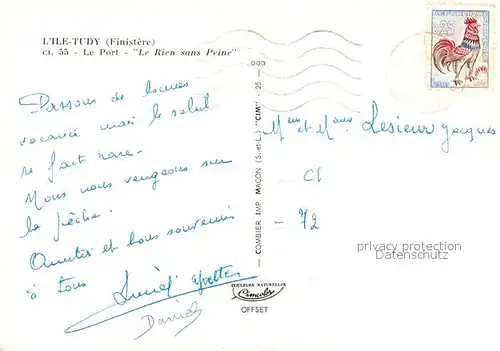 L'ILE-TUDY (Finistère)
CI. 55 - Le Port - "Le Rien sans Peine"
0,25
Passons de bonnes
vacances mais le soleil
se fait rare.
Nous nous vengeons sur
la pêche.
Amitiés et bons souvenirs
à tous
Yvette
Daniel
COMBIER IMP. MACON (S.-et-L.) "CIM" - 25 - 000
COULEURS NATURELLES
Cimcolor
OFFSET
et Lesieur Jacques
CI
- 72
privacy protection
DATENSCHUTZ